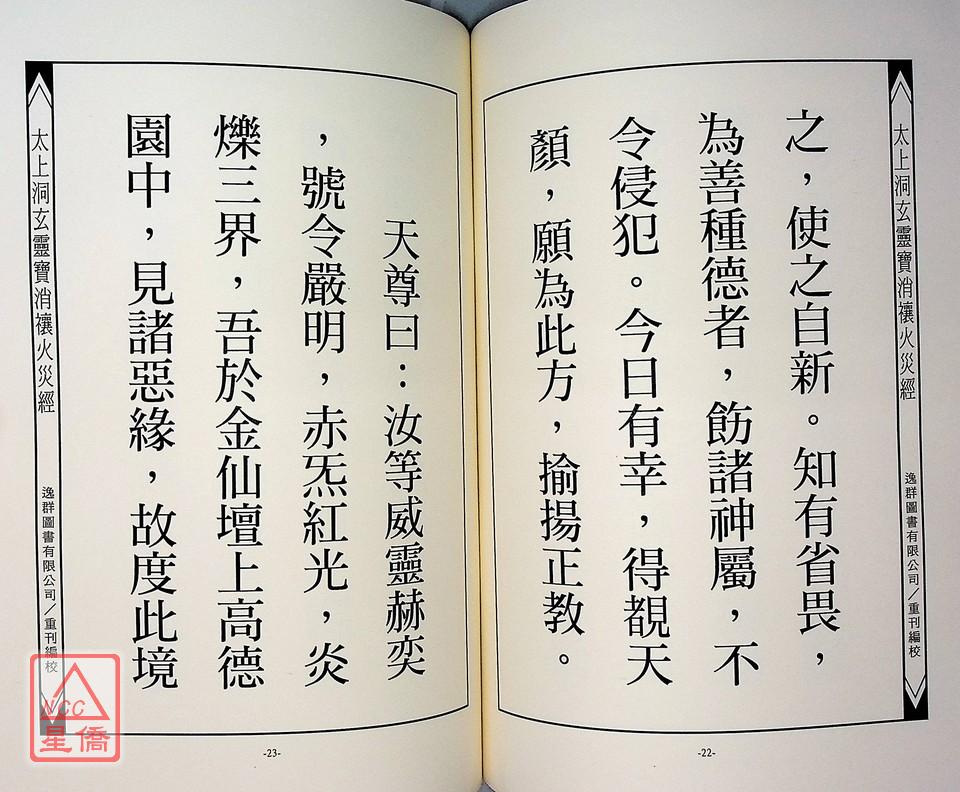 太上洞玄靈寶消禳火災經
逸群圖書有限公司／重刊編校
之，使之自新。知有省畏，
為善種德者，飭諸神屬，不
令侵犯。今日有幸，得覩天
顏，願為此方，揄揚正教。
-22-
天尊曰：汝等威靈赫奕
，號令嚴明，赤炁紅光，炎
爍三界，吾於金仙壇上高德
園中，見諸惡緣，故度此境
太上洞玄靈寶消禳火災經
逸群圖書有限公司／重刊編校
-23-
NCC
星僑